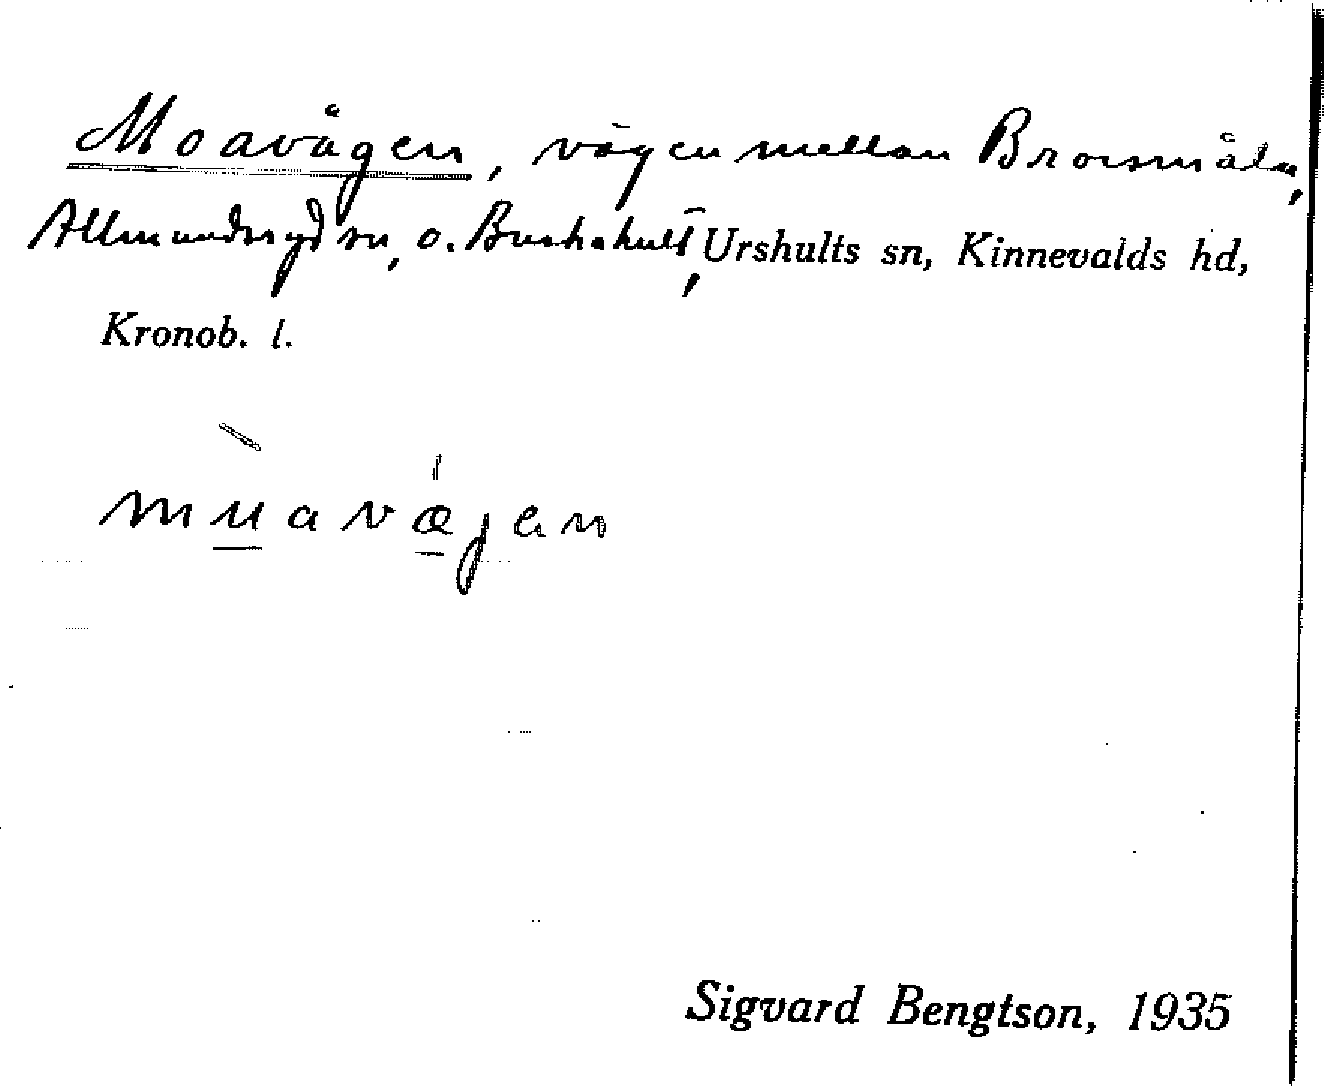 Moavägen, vägen mellan Brorsmåla,
Allmundsryd sn, o. Buskahult, Urshults sn, Kinnevalds hd,
Kronob. l.
m̀uavæ̍jen
Sigvard Bengtson, 1935